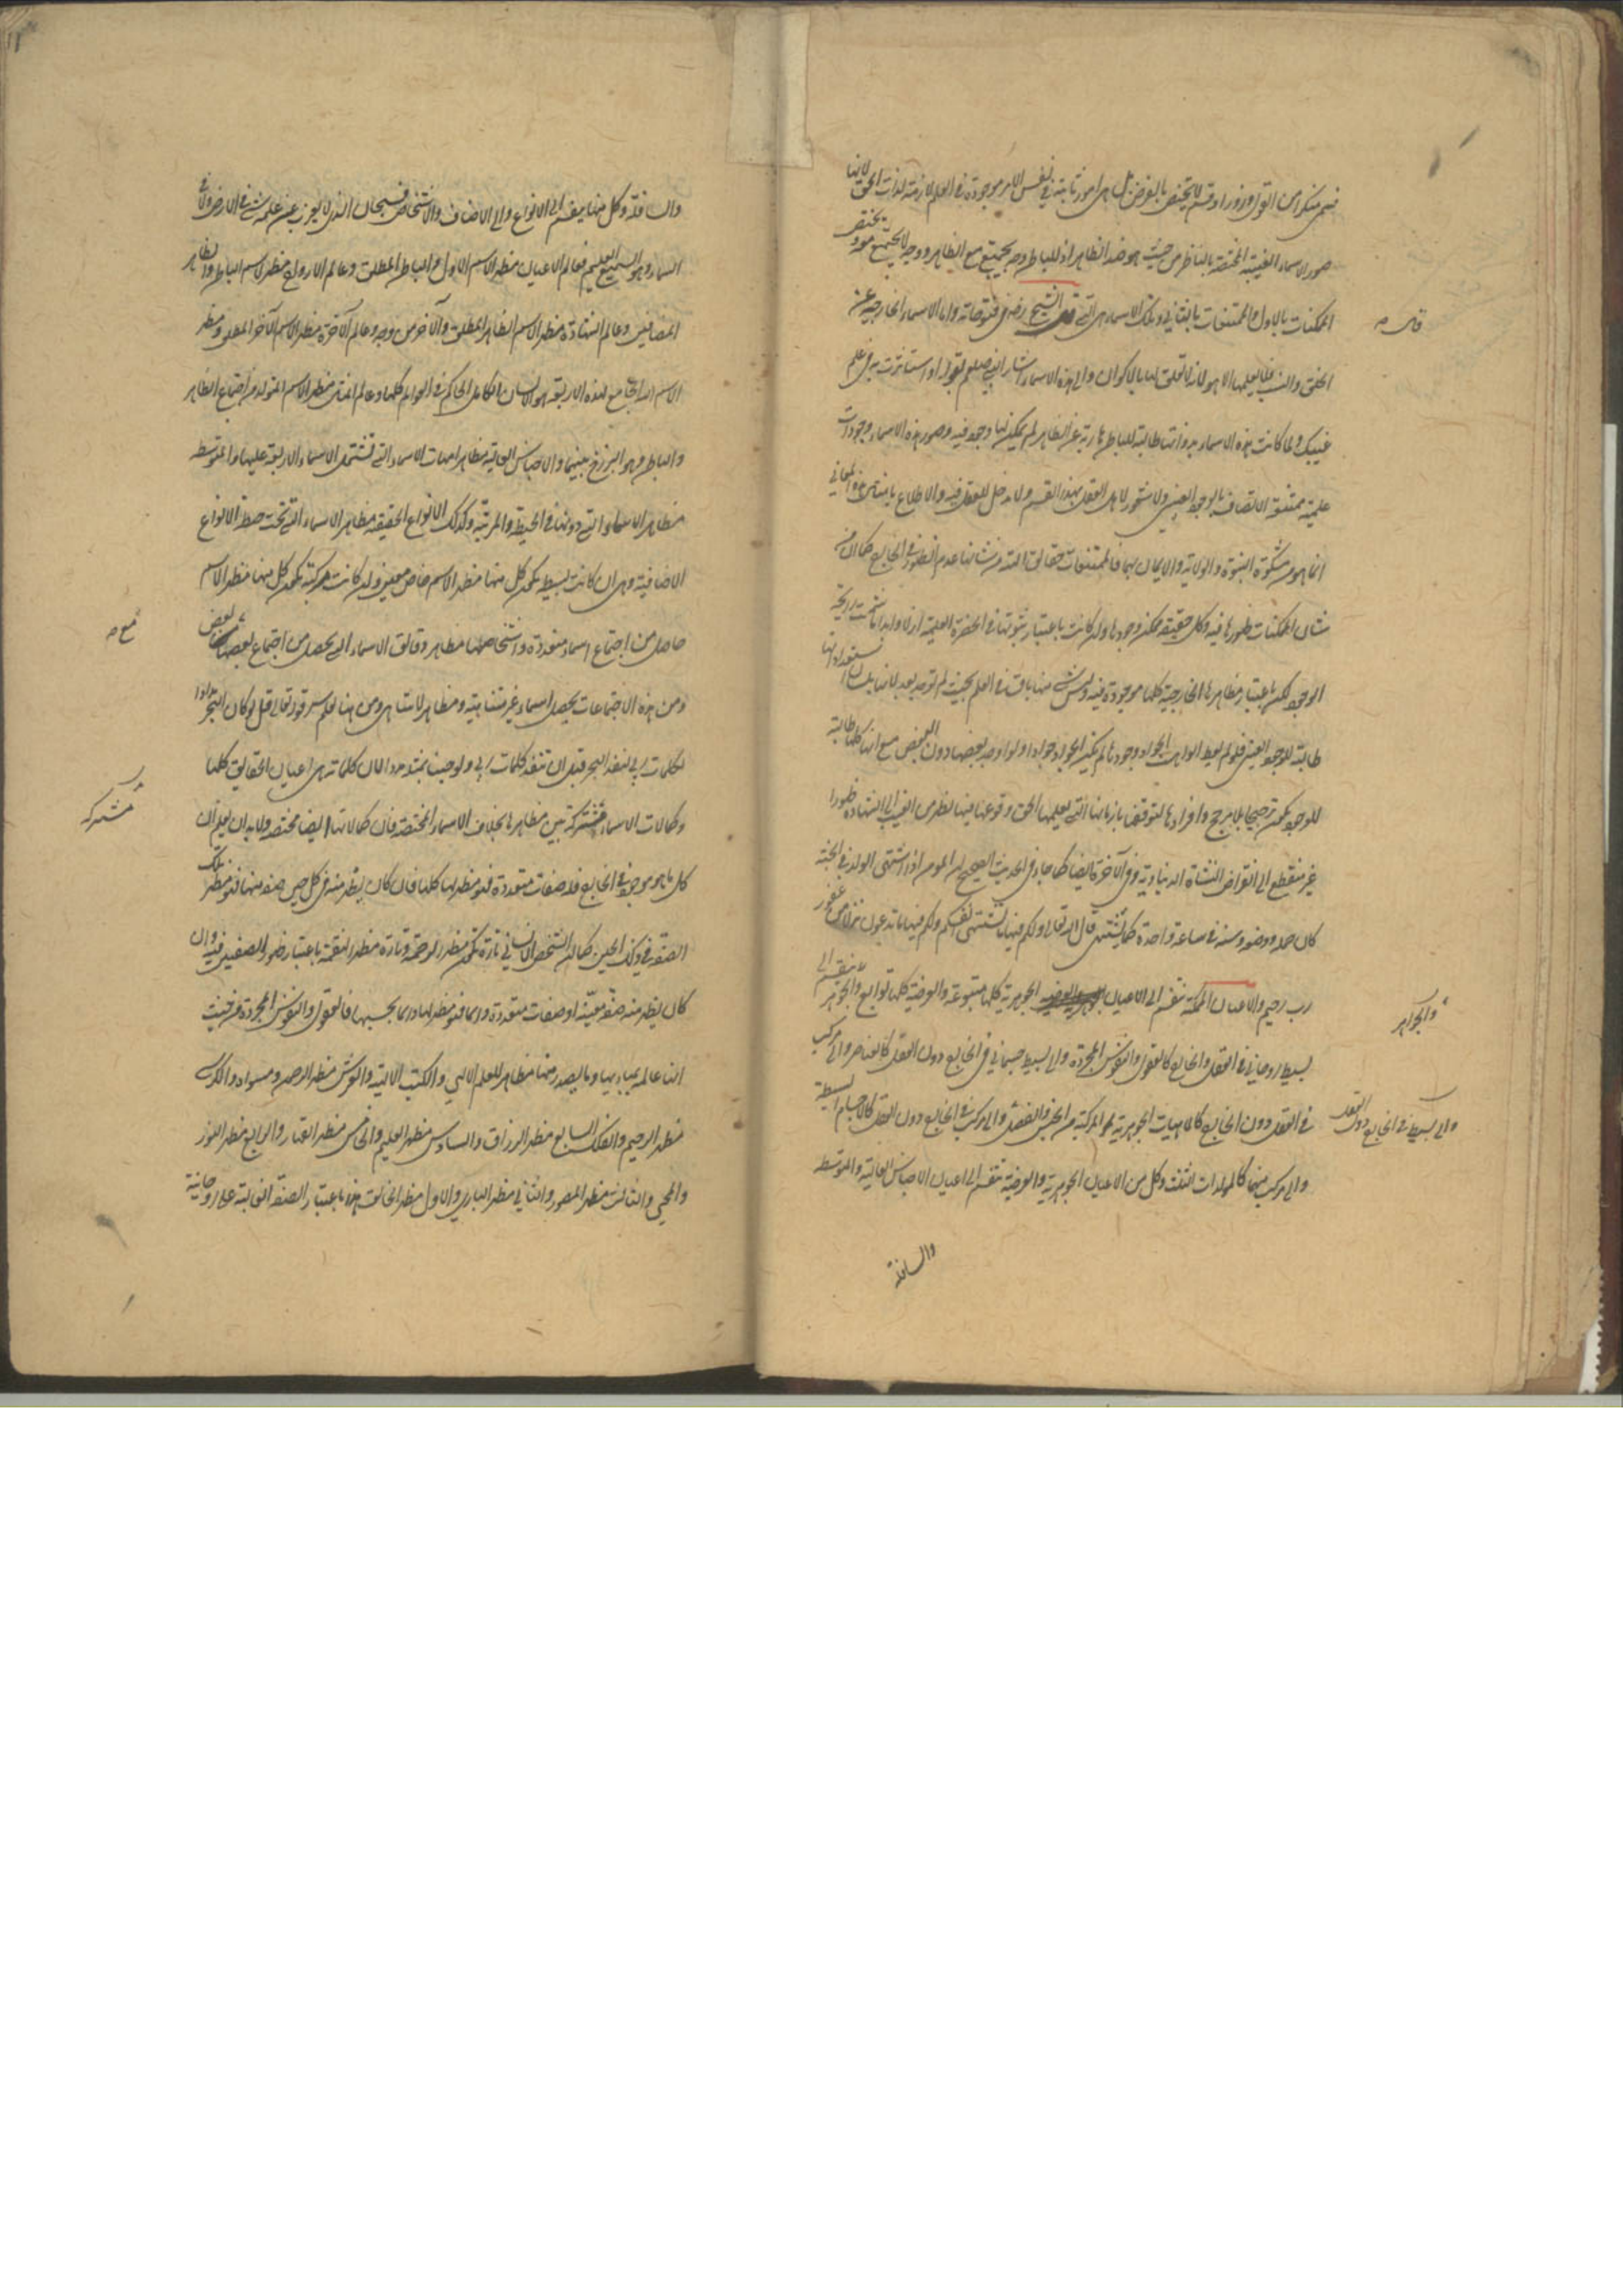 فهى منكرا من القول وزورا وقسم لا يختص بالفرض بل هى امور ثابتة فى نفس الامر موجودة فى العلم لازمة لذات الحق لانها
صور للاسماء الغيبية المختصة بالباطن من حيث هو ضد الظاهر اذ للباطن وجه يجتمع مع الظاهر ووجه لا يجتمع معه ويختص
الممكنات بالاول والممتنعات بالثانى وتلك الاسماء هى التى قال الشيخ رضى فى فتوحاته واما الاسماء الخارجة عن
قال صح
الخلق والنسب فلا يعلمها الا هو لانه لا تعلق لها بالاكوان والى هذه الاسماء اشار النبى صلعم بقوله او استأثرت به فى علم
غيبك ولما كانت هذه الاسماء بذواتها طالبة للباطن هاربة عن الظاهر لم يكن لها وجود فيه وصور هذه الاسماء وجودات
علمية ممتنعة الاتصاف بالوجود العينى ولا شعور لاهل العقل بهذا القسم ولا مدخل للعقل فيه والاطلاع بامثال هذه المعانى
انما هو من مشكوة النبوة والولاية والايمان بهما فالممتنعات حقائق الهية من شانها عدم الظهور فى الخارج كما ان من
شان الممكنات ظهورها فيه وكل حقيقة ممكنة وجودها وان كانت باعتبار ثبوتها فى الحضرة العلمية ازلا وابدا ما شمت رايحة
الوجود لكن باعتبار مظاهرها الخارجية كلها موجودة فيه وليس شئ منها باقيا فى العلم بحيث لم توجد بعد لانها بلسان استعداداتها
طالبة للوجود العينى فلو لم يعط الواهب الجواد وجودها لم يكن الجواد جوادا ولو اوجد بعضها دون البعض مع انها كلها طالبة
للوجود يكون ترجيحا بلا مرجح وافرادها لتوقفها بازمانها التى يعلمها الحق وقوعها فيها يظهر من الغيب الى الشهادة ظهورا
غير منقطع الى انقراض النشأة الدنياوية وفى الآخرة ايضا كما جاء فى الحديث الصحيح ان المومن اذا اشتهى الولد فى الجنة
كان حمله ووضعه وسنه فى ساعة واحدة كما يشتهى قال الله تعالى ولكم فيها ما تشتهى انفسكم ولكم فيها ما تدعون نزلا من غفور
رب رحيم والاعيان الممكنة تنقسم الى الاعيان الجوهرية والعرضية الجوهرية كلها متبوعة والعرضية كلها توابع والجواهر تنقسم الى
والجواهر
بسيط روحانى فى العقل والخارج كالعقول والنفوس المجردة والى بسيط جسمانى فى الخارج دون العقل كالعناصر والى مركب
فى العقل دون الخارج كالماهيات الجوهرية المركبة من الجنس والفصل والى مركب فى الخارج دون العقل كالاجسام البسيطة
والى بسيط فى الخارج دون العقل
والى مركب منهما كالمولدات الثلث وكل من الاعيان الجوهرية والعرضية تنقسم الى اعيان الاجناس العالية والمتوسطة
والسافلة
١١
والسافلة وكل منها ينقسم الى الانواع والى الاصناف والاشخاص فسبحان الذى لا يعزب عن علمه شئ فى الارض ولا فى
السماء وهو السميع العليم فعالم الاعيان مظهر الاسم الاول والباطن المطلق وعالم الارواح مظهر الاسم الباطن والظاهر
المضافين وعالم الشهادة مظهر الاسم الظاهر المطلق والآخر من وجه وعالم الآخرة مظهر الاسم الآخر المطلق ومظهر
الاسم الله الجامع لهذه الاربعة هو الانسان الكامل الحاكم فى العوالم كلها وعالم المثال مظهر الاسم المتولد من اجتماع الظاهر
والباطن وهو البرزخ بينهما والاجناس العالية مظاهر امهات الاسماء التى تشتمل الاسماء الاربعة عليها والمتوسطة
مظاهر الاسماء التى دونها فى الحيطة والمرتبة وكذلك الانواع الحقيقية مظاهر الاسماء التى تحت حيطة الانواع
الاضافية وهى ان كانت بسيطة يكون كل منها مظهر الاسم خاص معين وان كانت مركبة يكون كل منها مظهر الاسم
حاصل من اجتماع اسماء متعددة واشخاصها مظاهر رقائق الاسماء التى يحصل من اجتماع بعضها مع بعض
مع صح
ومن هذه الاجتماعات يحصل اسماء غير متناهية ومظاهر لا تتناهى ومن هنا يعلم سر قوله تعالى قل لو كان البحر مدادا
لكلمات ربى لنفد البحر قبل ان تنفد كلمات ربى ولو جئنا بمثله مددا لان كلماته هى اعيان الحقائق كلها
وكمالات الاسماء مشتركة بين مظاهرها بخلاف الاسماء المختصة فان كمالاتها ايضا مختصة ولابد ان يعلم ان
مشتركة
كل ما هو موجود فى الخارج فله صفات متعددة فهو مظهر لها كلها فان كان يظهر منه فى كل حين صفة منها فهو مظهر تلك
الصفة فى ذلك الحين كما ان الشخص الانسانى تارة يكون مظهر الرحمة وتارة مظهر النقمة باعتبار ظهور الصفتين فيه وان
كان يظهر منه صفة معينة او صفات متعددة دائما فهو مظهر لها دائما بحسبها فالعقول والنفوس المجردة من حيث
انها عالمة بمباديها وما يصدر منها مظاهر للعلم الالهى والكتب الالهية والعرش مظهر الرحمن ومستواه والكرسى
مظهر الرحيم والفلك السابع مظهر الرزاق والسادس مظهر العليم والخامس مظهر القهار والرابع مظهر النور
والمحيى والثالث مظهر المصور والثانى مظهر البارى والاول مظهر الخالق هذا باعتبار الصفة الغالبة على روحانية